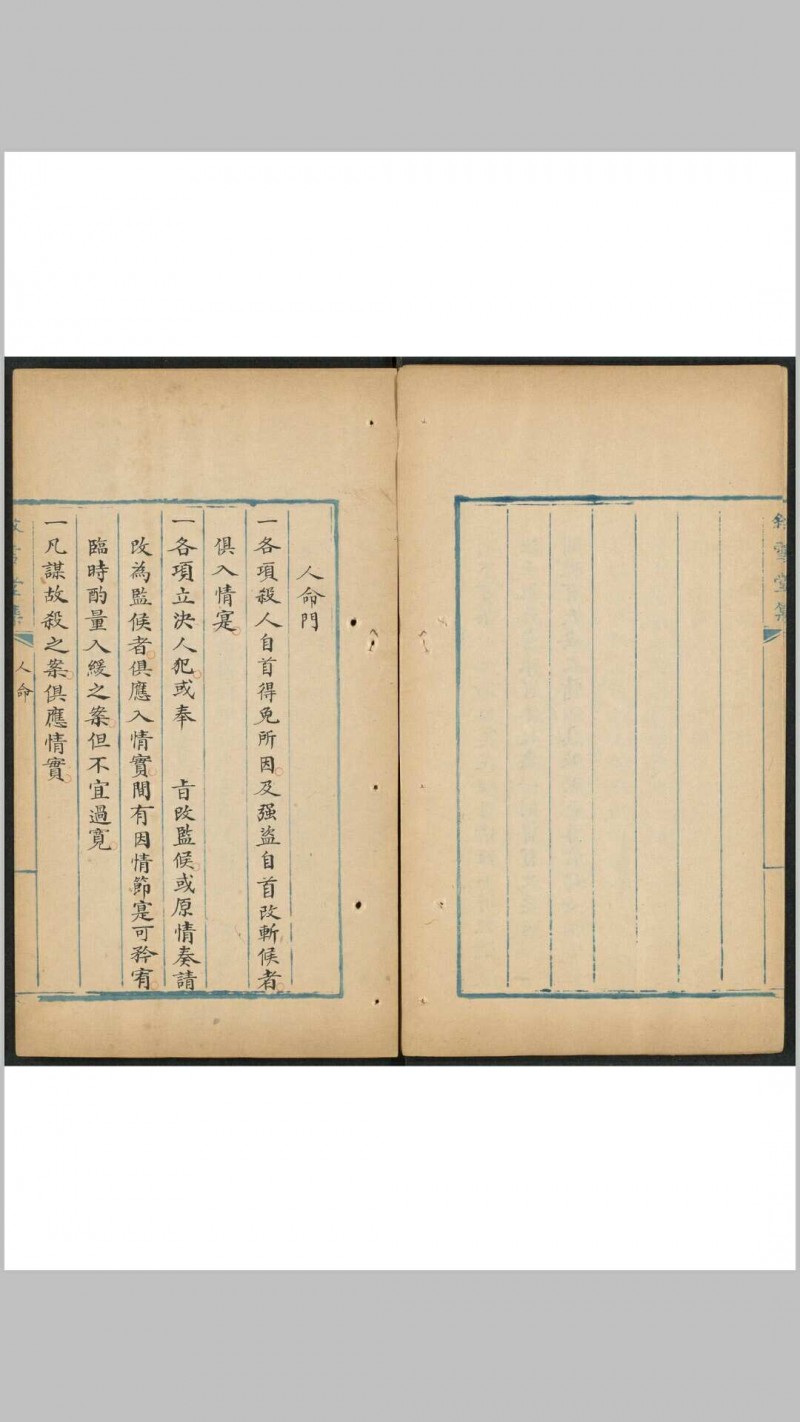 人命門
一各項殺人自首得免所因及强盜自首改斬候者
俱入情寔
一各項立決人犯或奉　　㫖改監候或原情奏請
改為監候者俱應入情實間有因情節寔可矜宥
臨時酌量入緩之案但不宜過寛
一凡謀故殺之案俱應情實
人命